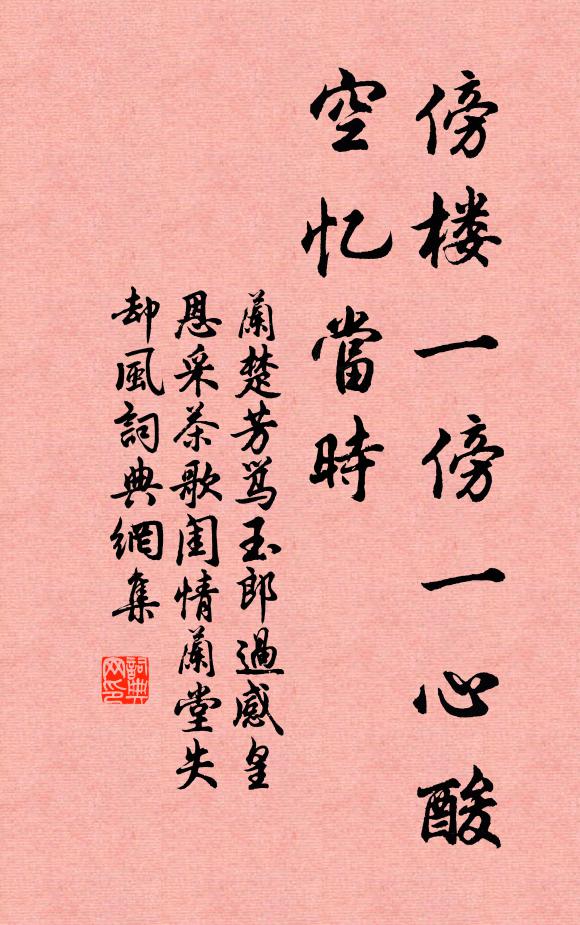 傍楼一傍一心酸
空忆當時
蘭楚芳骂玉郎過感皇
恩采茶歌閨情蘭堂失
却風詞典網集
詞典
网印